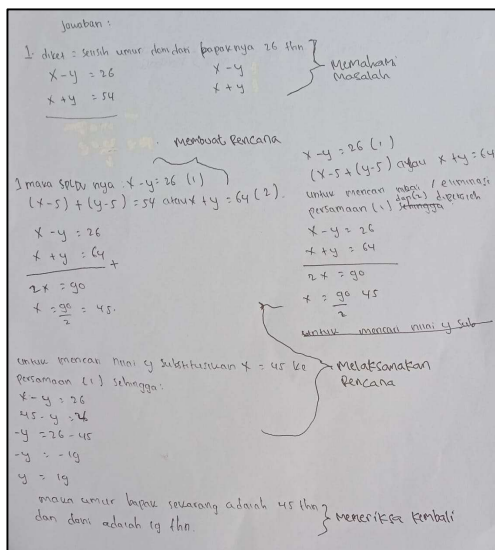 Jawaban :
1. diket = selisih umur dani dari bapaknya 26 thn
x - y = 26
x + y = 54
x - y
x + y
Memahami
Masalah
Membuat Rencana
] maka SPLDV nya : x - y = 26 (1)
(x - 5) + (y - 5) = 54 atau x + y = 64 (2).
x - y = 26
x + y = 64 +
2x = 90
x = 90/2 = 45.
x - y = 26 (1)
(x - 5 + (y - 5) atau x + y = 64
untuk mencari nilai / eliminasi
persamaan (1) dan (2) diperoleh
sehingga
x - y = 26
x + y = 64
2x = 90
x = 90/2 45
untuk mencari nilai y sub
untuk mencari nilai y substitusikan x = 45 ke
persamaan (1) sehingga :
x - y = 26
45 - y = 26
-y = 26 - 45
-y = -19
y = 19
Melaksanakan
Rencana
maka umur bapak sekarang adalah 45 thn
dan dani adalah 19 thn.
Memeriksa kembali